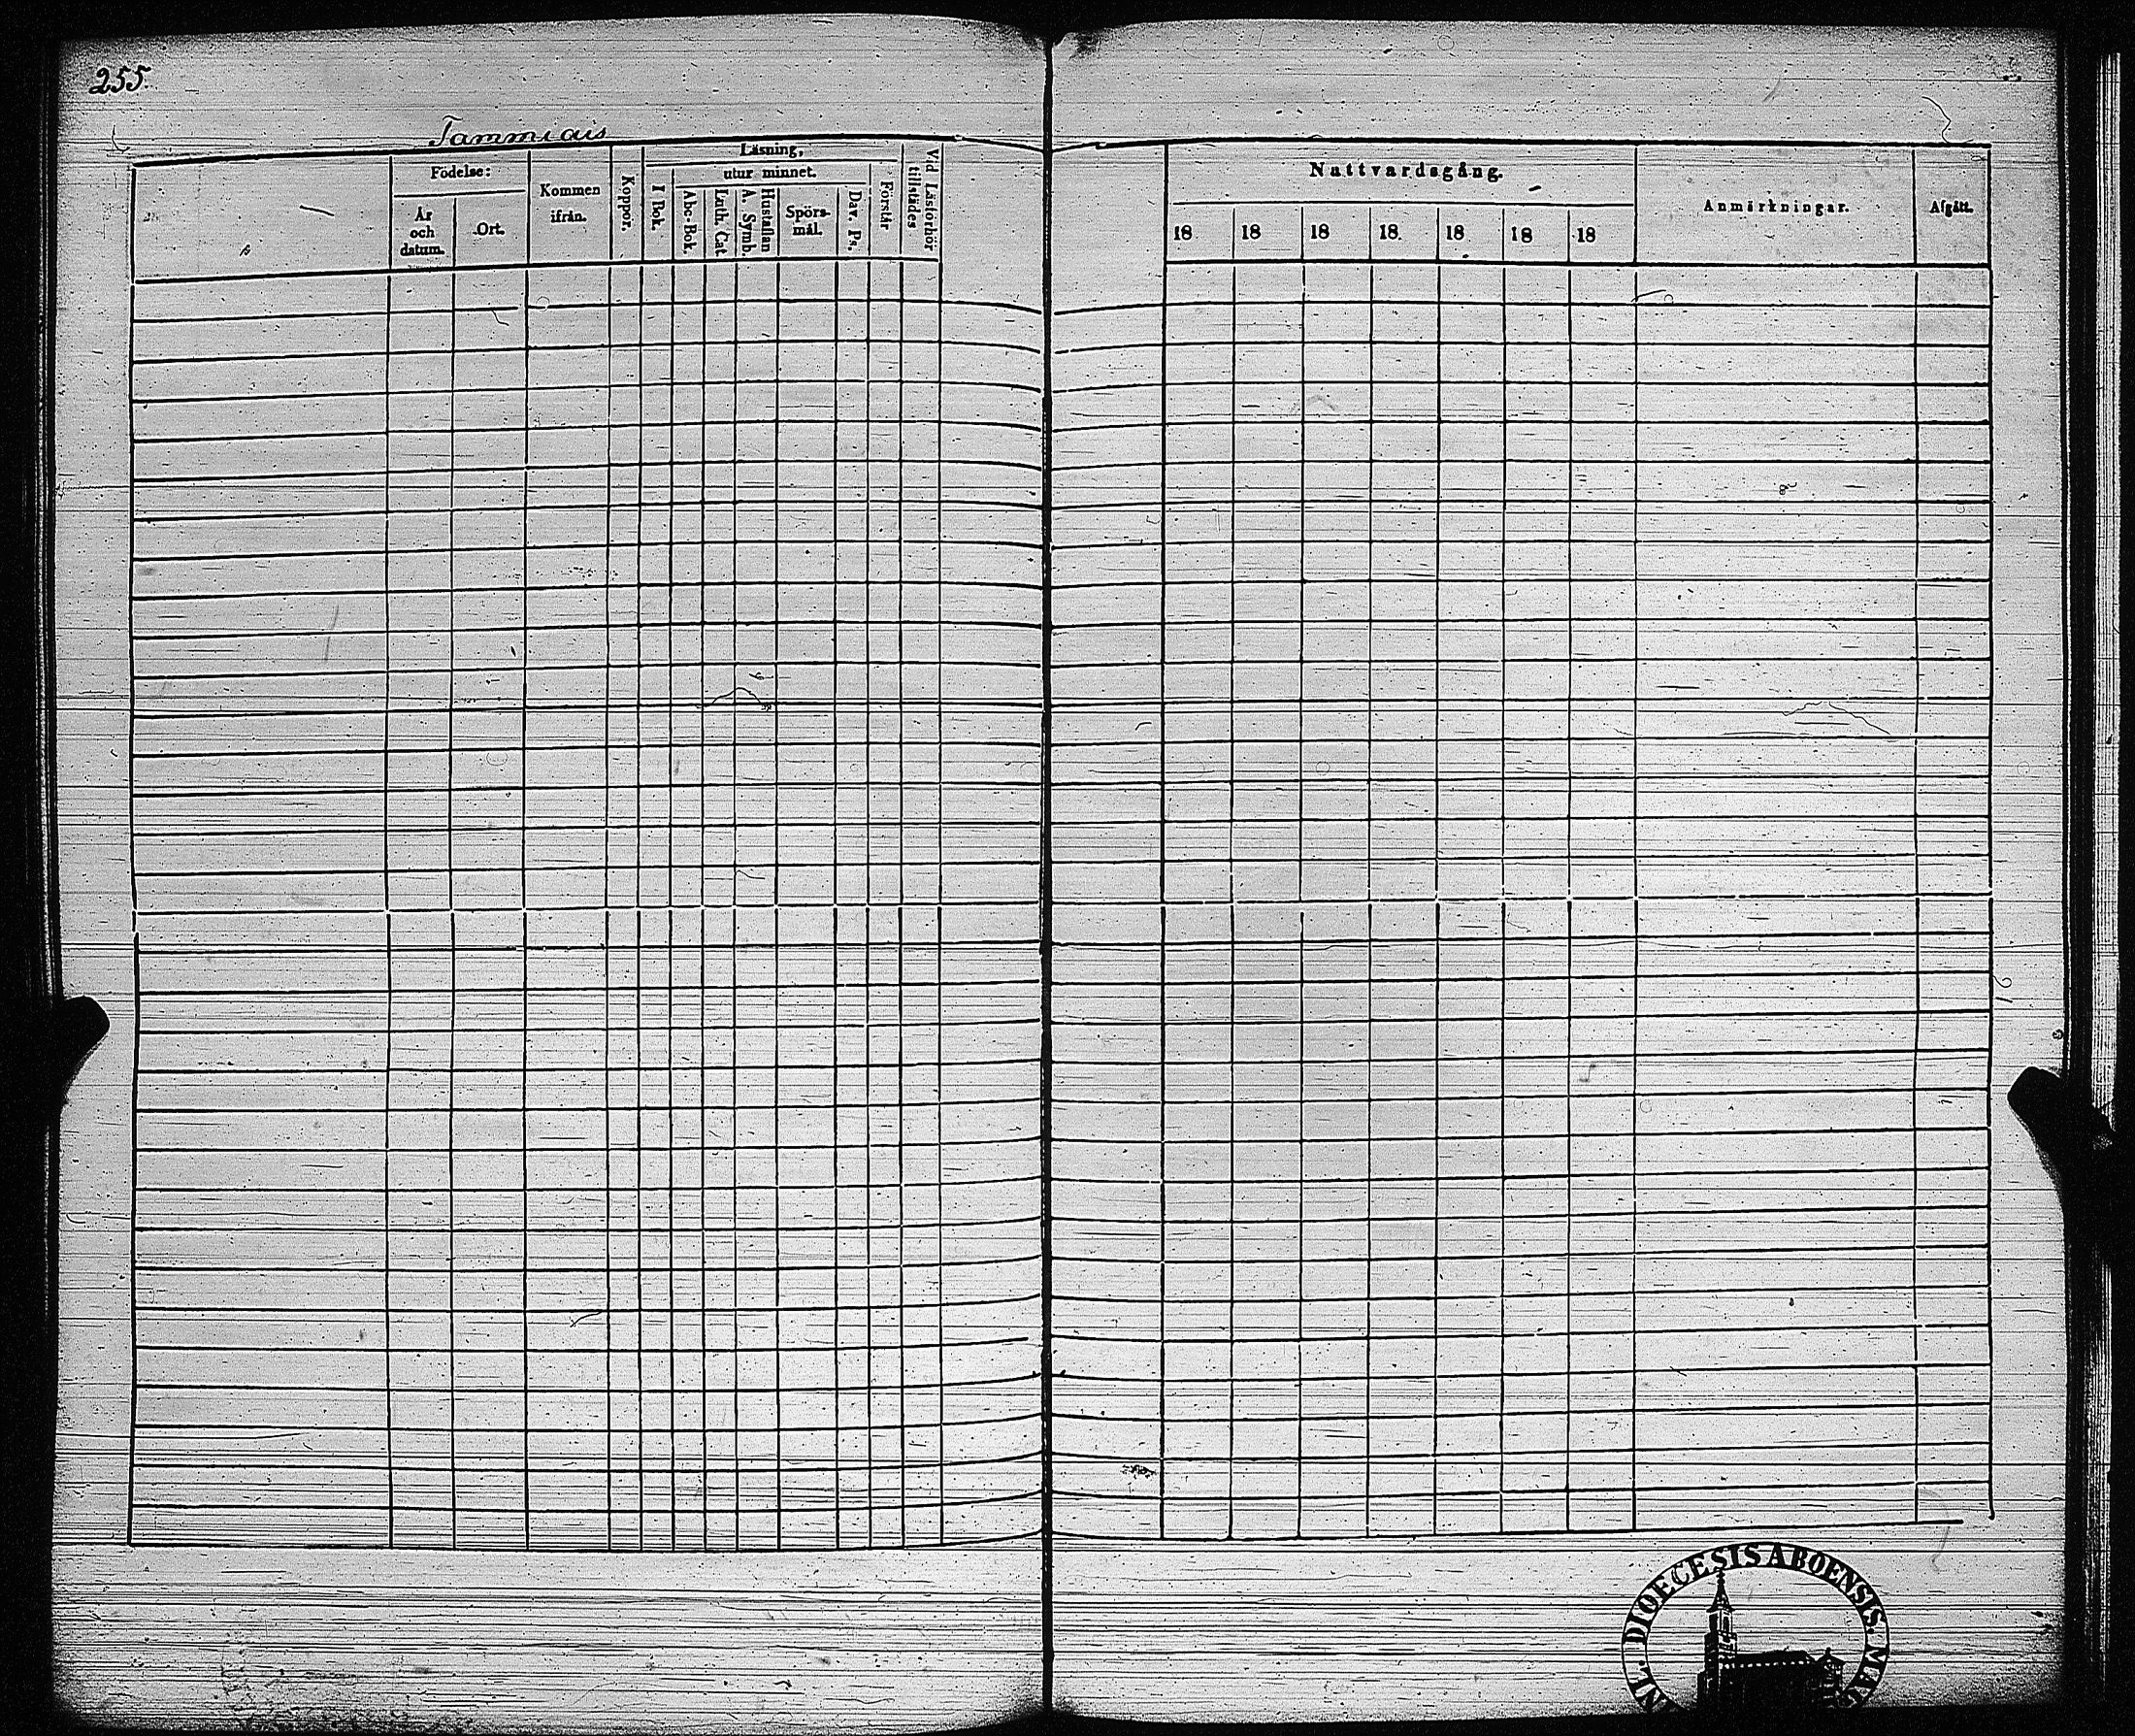 255.
Tammiais
Födelse:
År och datum.
Ort.
Kommen ifrån.
Koppor.
Läsning,
I Bok.
utur minnet.
Abc-Bok.
Luth. Cat.
Hustaflan A. Symb.
Spörs-mål.
Dav. Ps.
Förstår
Vid Läsförhör tillstädes
Nattvardsgång.
18 18 18 18. 18 18 18
Anmärkningar.
Afgått.
DIOECESIS ABOENSIS.